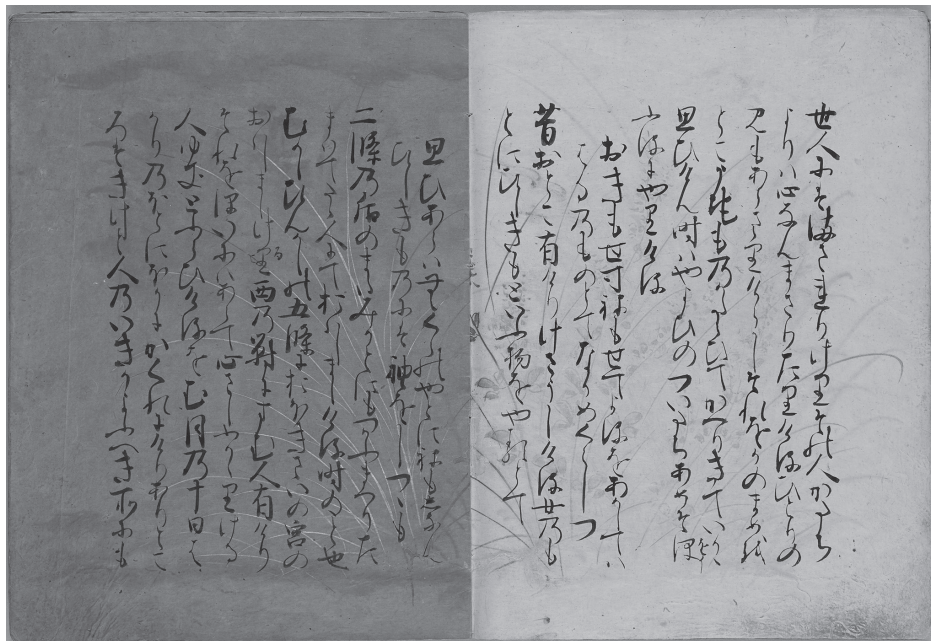 世人にはまされりけりその人かたち
よりは心なんまさりたりけるひとりの
みもあらさりけらしそれをかのまめお
とこうちものかたらひてかへりきていかゝ
思ひけん時はやよひのついたちあめそほ
ふるにやりける
おきもせすねもせてよるをあかしては
はるのものとてなかめくらしつ
昔おとこ有けりけさうしける女のも
とにひしきもといふ物をやるとて
思ひあらはむくらのやとにねもしなん
ひしきものには袖をしつゝも
二條の后のまたみかとにもつかうまつりた
まはてたゝ人にておはしましける時のこと也
むかしひんかしの五條におほきさいの宮の
おはしましける西の對にすむ人有けり
それをほいにはあらて心さしふかゝりける
人ゆきとふらひけるをむ月の十日は
かりのほとにほかにかくれにけりありとこ
ろはきけと人のいきかよふへき所にも